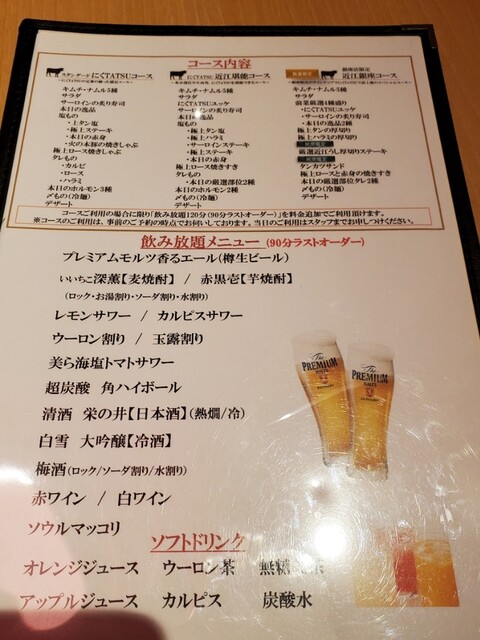 コース内容
スタンダード にくTATSUコース
キムチ・ナムル5種
サラダ
サーロインの炙り寿司
本日の逸品
塩もの
・上タン塩
・極上ステーキ
・本日の赤身
極上ロース焼きしゃぶ
タレもの
・カルビ
・ロース
・ハラミ
本日のホルモン3種
〆もの(冷麺)
デザート
にくTATSU 近江堪能コース
キムチ・ナムル5種
サラダ
にくTATSUユッケ
サーロインの炙り寿司
本日の逸品
塩もの
・極上タン塩
・極上ハラミ
・サーロインステーキ
・本日の赤身
極上ロース焼きすき
タレもの
・本日の厳選部位2種
本日のホルモン2種
〆もの(冷麺)
デザート
銀座店限定
近江銀座コース
キムチ・ナムル5種
サラダ
前菜厳選4種盛り
・にくTATSUユッケ
・サーロインの炙り寿司
・本日の逸品2種
極上タンの厚切り
極上ハラミの厚切り
厳選近江ひうし厚切りステーキ
タンカツサンド
極上ロースと赤身の焼きすき
本日の厳選部位タレ2種
〆もの(冷麺)
デザート
コースご利用の場合に限り「飲み放題120分(90分ラストオーダー)」を料金追加でご利用頂けます。
※コースのご利用は、事前のご予約の時点でお伺いしております。当日のご利用はスタッフまでお申しつけください。
飲み放題メニュー (90分ラストオーダー)
プレミアムモルツ香るエール(樽生ビール)
いいちこ深薫【麦焼酎】 / 赤黒壱【芋焼酎】
(ロック・お湯割り・ソーダ割り・水割り)
レモンサワー / カルピスサワー
ウーロン割り / 玉露割り
美ら海塩トマトサワー
超炭酸 角ハイボール
清酒 栄の井【日本酒】(熱燗/冷)
白雪 大吟醸【冷酒】
梅酒(ロック/ソーダ割り/水割り)
赤ワイン / 白ワイン
ソウルマッコリ
The PREMIUM MALT'S
The PREMIUM MALT'S
ソフトドリンク
オレンジジュース ウーロン茶 無糖
アップルジュース カルピス 炭酸水